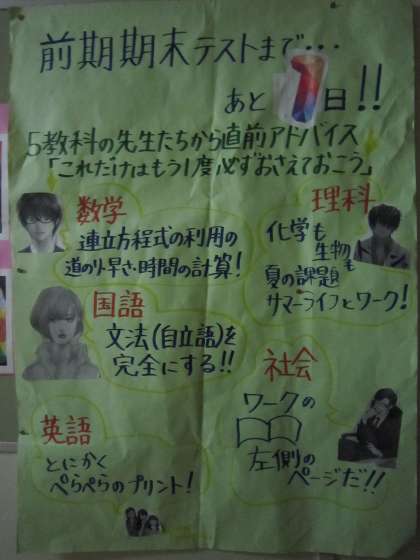 前期期末テストまで…
あと1日!!
5教科の先生たちから直前アドバイス
「これだけはもう1度必ずおさえておこう」
数学
連立方程式の利用の
道のり・早さ・時間の計算!
国語
文法(自立語)を
完全にする!!
英語
とにかく
ぺらぺらのプリント!
理科
化学も
生物も
夏の課題
サマーライフとワーク!
社会
ワークの
左側の
ページだ!!